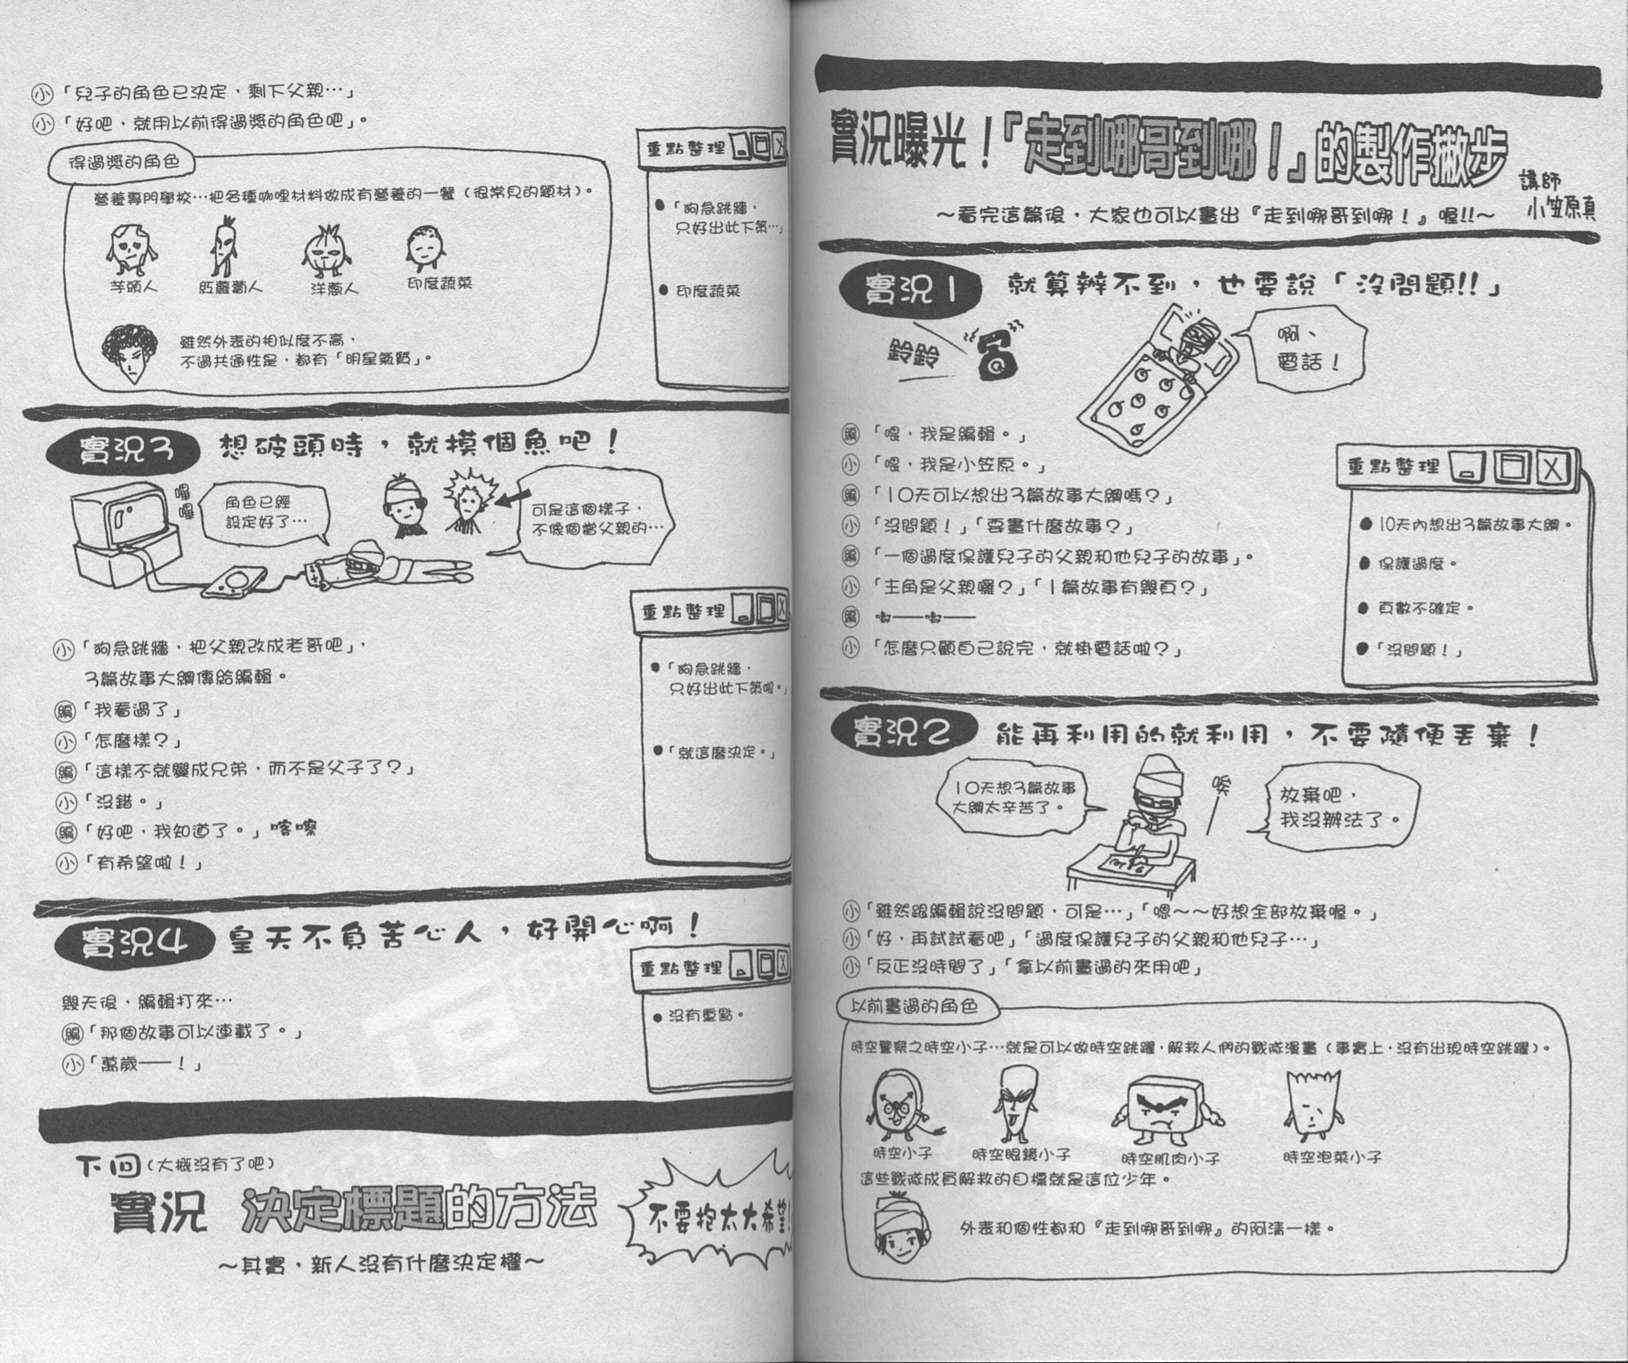 實況曝光!「走到哪哥到哪!」的製作撇步
講師
小笠原真
～看完這篇後,大家也可以畫出『走到哪哥到哪!』喔!!～
實況1 就算辦不到,也要說「沒問題!!」
鈴鈴
啊、
電話!
編「喂,我是編輯。」
小「喂,我是小笠原。」
編「10天可以想出3篇故事大綱嗎?」
小「沒問題!」「要畫什麼故事?」
編「一個過度保護兒子的父親和他兒子的故事」。
小「主角是父親囉?」「1篇故事有幾頁?」
編 嘟——嘟——
小「怎麼只顧自己說完,就掛電話啦?」
重點整理
●10天內想出3篇故事大綱。
●保護過度。
●頁數不確定。
●「沒問題!」
實況2 能再利用的就利用,不要隨便丟棄!
10天想3篇故事
大綱太辛苦了。
唉
放棄吧,
我沒辦法了。
小「雖然跟編輯說沒問題,可是…」「嗯～～好想全部放棄喔。」
小「好,再試試看吧」「過度保護兒子的父親和他兒子…」
小「反正沒時間了」「拿以前畫過的來用吧」
以前畫過的角色
時空警察之時空小子…就是可以做時空跳躍,解救人們的戰隊漫畫(事實上,沒有出現時空跳躍)。
時空小子
時空眼鏡小子
時空肌肉小子
時空泡菜小子
這些戰隊成員解救的目標就是這位少年。
外表和個性都和『走到哪哥到哪』的阿清一樣。
小「兒子的角色已決定,剩下父親…」
小「好吧,就用以前得過獎的角色吧」。
得過獎的角色
營養專門學校…把各種咖哩材料做成有營養的一餐(很常見的題材)。
芋頭人
紅蘿蔔人
洋蔥人
印度蔬菜
雖然外表的相似度不高,
不過共通性是,都有「明星氣質」。
重點整理
●「狗急跳牆,
只好出此下策…」
●印度蔬菜
實況3 想破頭時,就摸個魚吧!
嗶嗶
角色已經
設定好了…
可是這個樣子,
不像個當父親的…
小「狗急跳牆,把父親改成老哥吧」,
3篇故事大綱傳給編輯。
編「我看過了」
小「怎麼樣?」
編「這樣不就變成兄弟,而不是父子了?」
小「沒錯。」
編「好吧,我知道了。」喀嚓
小「有希望啦!」
重點整理
●「狗急跳牆,
只好出此下策吧。」
●「就這麼決定。」
實況4 皇天不負苦心人,好開心啊!
幾天後,編輯打來…
編「那個故事可以連載了。」
小「萬歲——!」
重點整理
●沒有重點。
下回(大概沒有了吧)
實況 決定標題的方法
～其實,新人沒有什麼決定權～
不要抱太大希望!